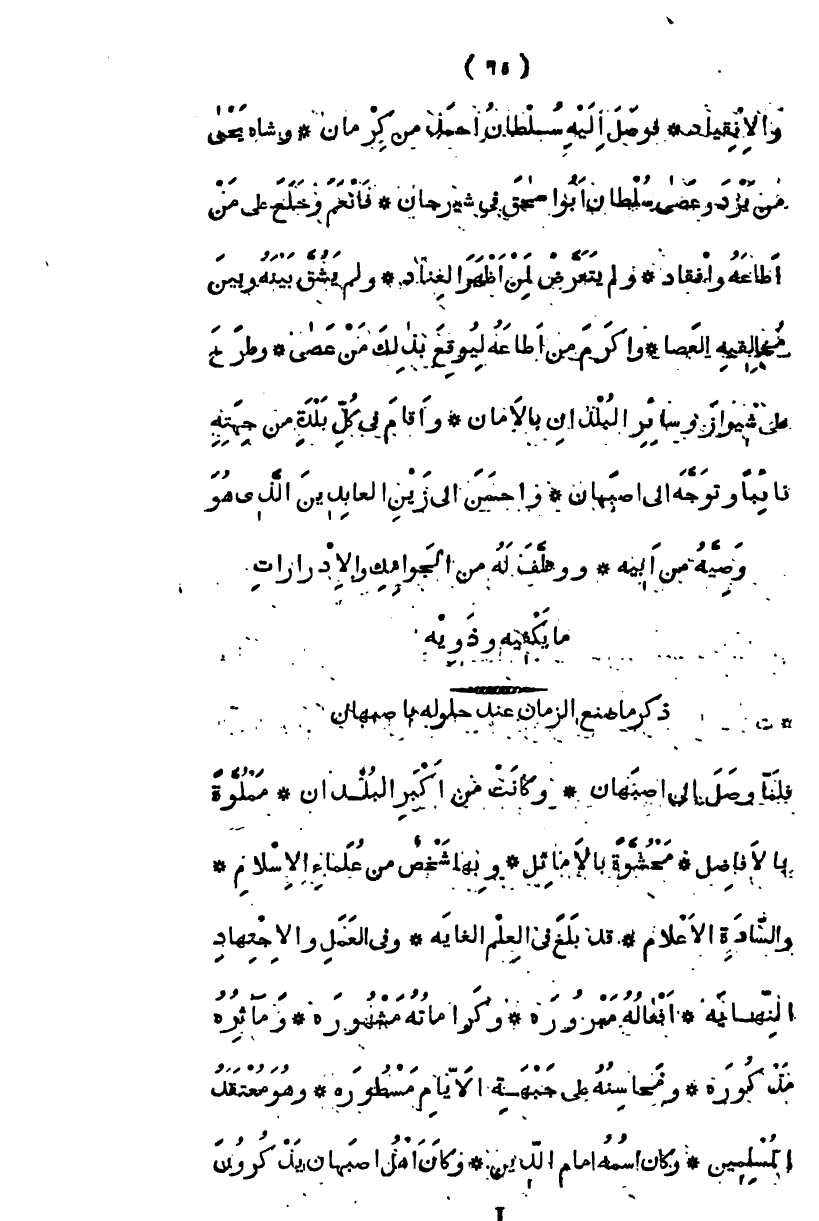 ( ٦٥ )
وَالْاِنْقِيَاد * فوَصَلَ اِلَيْهِ سُلْطانُ احمَدَ من كِرْمان * وشاه يَحْيٰى
مِنْ يَزْدَ وعَصٰى سُلْطان اَبُوا سحٰق فى شيرجان * فَاَنْعَمَ وَخَلَعَ على مَنْ
اَطاعَهُ وانْقاد * ولم يَتَعَرَّضْ لِمَنْ اَظْهَرَ العِناد * ولم يَشُقَّ بَيْنَهُ وبينَ
مُخالِفيهِ العَصا * واكرَمَ من اَطاعَهُ لِيُوقِعَ بذٰلِكَ مَنْ عَصٰى * وطرَحَ
على شيرازَ وسائِرِ البُلْدانِ بالاَمان * واَقامَ فى كُلِّ بَلْدَةٍ من جِهَتِهِ
نائِباً وتوَجَّهَ الى اصبَهان * واحسَنَ الى زَيْنِ العابِدِينَ الَّذِى هُوَ
وَصِيُّهُ من اَبِيه * ووظَّفَ لَهُ من الجَوامِكِ والاِدْرارات
ما يَكْفيه وذَوِيْه
ذكر ما صنع الزمان عند حلوله باصبهان
فلَمّا وصَلَ الى اصبَهان * وكانَتْ مِن اَكْبَرِ البُلْدان * مَمْلُوَّةً
بالاَفاضِل * مَحْشُوَّةً بالاَماثِل * وبِها شَخْصٌ من عُلَماءِ الاِسْلام *
والسَّادَةِ الاَعْلام * قد بَلَغَ فى العِلْمِ الغايَه * وفى العَمَلِ والاجْتِهادِ
النِّهايَه * اَفْعالُهُ مَبْرُورَه * وكَراماتُهُ مَشْهُورَه * ومَآثِرُهُ
مَذْكُورَه * ومَحاسِنُهُ على جَبْهَةِ الاَيّامِ مَسْطُورَه * وهُوَ مُعْتَقَدُ
المُسْلِمين * وكان اسْمُهُ امام الدّين * وكانَ اَهْلُ اصبَهان يَذْكُرُونَ
I